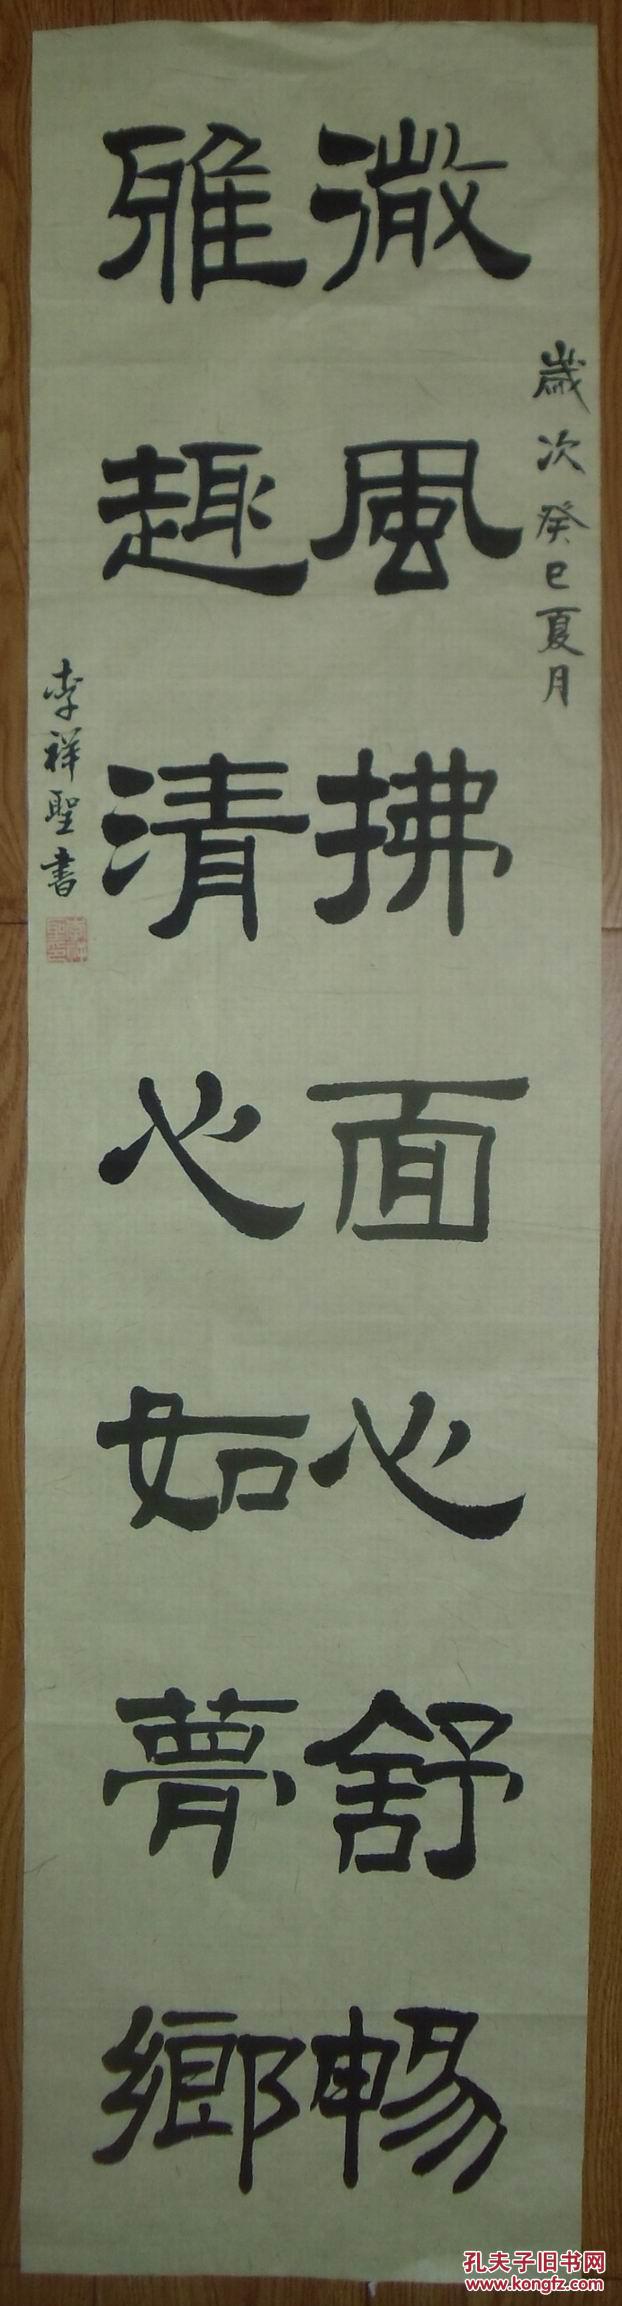 歲次癸巳夏月
微風拂面心舒暢
雅趣清心如夢鄉
李祥聖書
孔夫子旧书网
www.kongfz.com